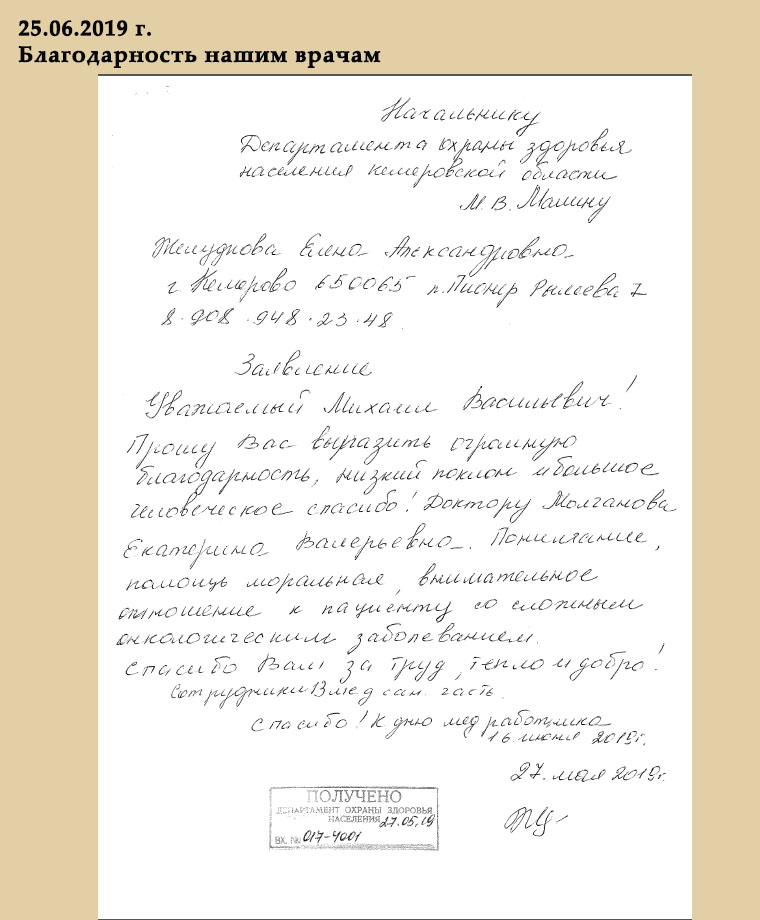 25.06.2019 г.
Благодарность нашим врачам
Начальнику
Департамента охраны здоровья
населения кемеровской области
М. В. Малину
Желуднова Елена Александровна
г Кемерово 650065 п. Пионер Рылеева 7
8. 908 . 948 . 23 . 48
Заявление
Уважаемый Михаил Васильевич!
Прошу Вас выразить огромную
благодарность, низкий поклон и большое
человеческое спасибо! Доктору Молганова
Екатерина Валерьевна. Понимание,
помощь моральная, внимательное
отношение к пациенту со сложным
онкологическим заболеванием.
Спасибо Вам за труд, тепло и добро!
Сотрудники мед сан. часть.
Спасибо! К дню мед работника
16 июня 2019г.
27. мая 2019г.
ПОЛУЧЕНО
ДЕПАРТАМЕНТ ОХРАНЫ ЗДОРОВЬЯ
НАСЕЛЕНИЯ 27.05.19
ВХ. № 017-4001